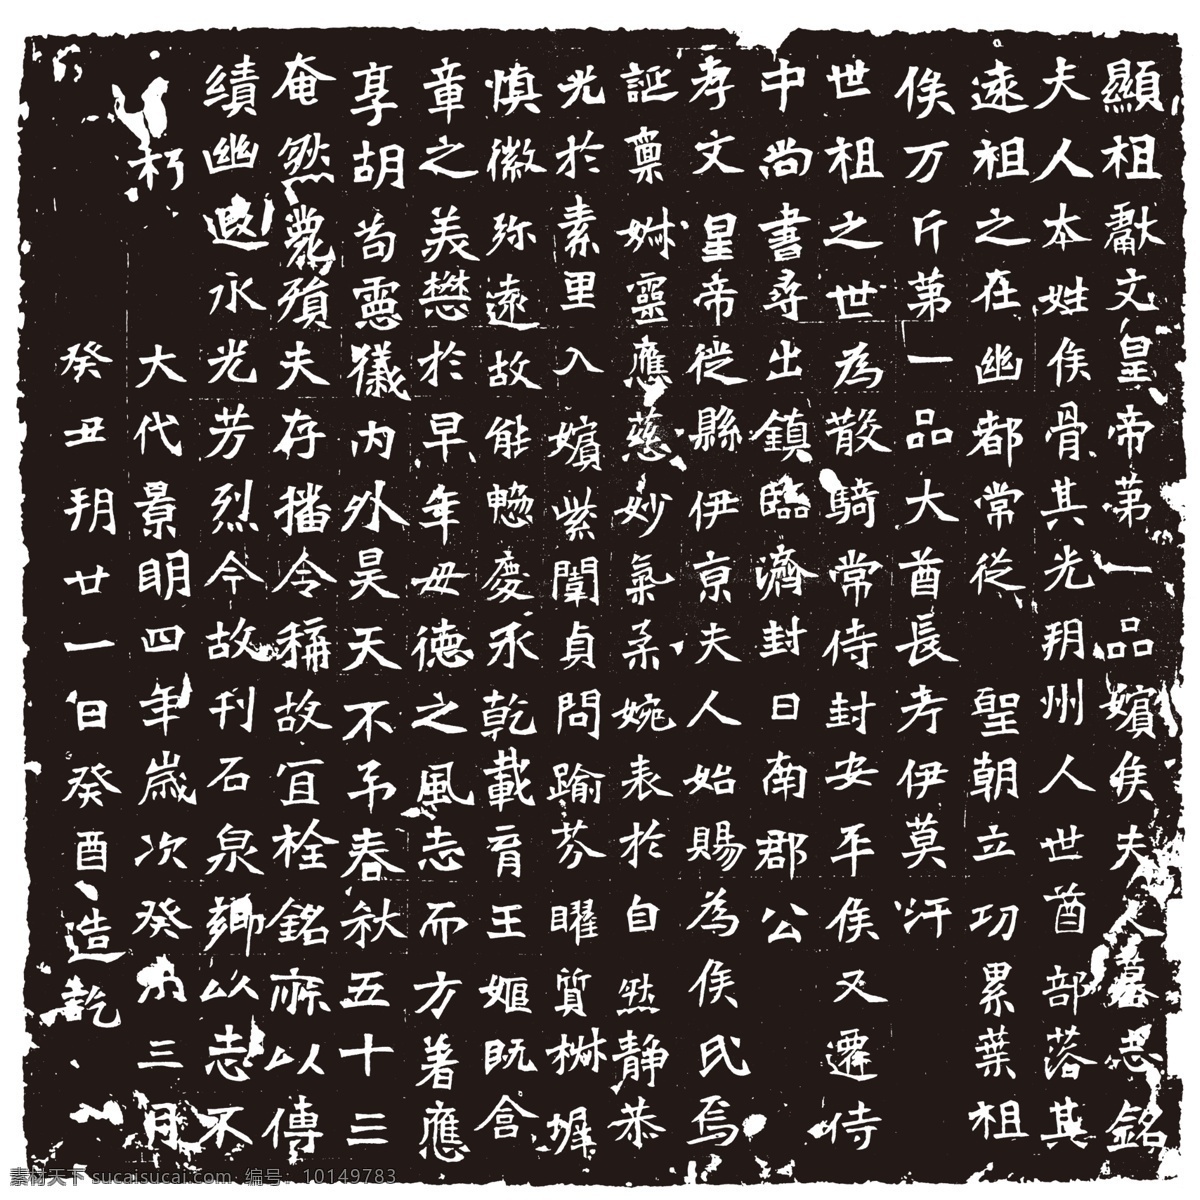 顯祖獻文皇帝第一品嬪侯夫人墓志銘
夫人本姓侯骨其光朔州人世酋部落其
遠祖之在幽都常從 聖朝立功累葉祖
俟万斤第一品大酋長考伊莫汗
世祖之世為散騎常侍封安平侯又遷侍
中尚書尋出鎮臨濟封日南郡公
孝文皇帝徙縣伊京夫人始賜為侯氏焉
誕稟淑靈應慈妙氣柔婉表於自然静恭
光於素里入嬪紫闈貞問踰芬曜質椒墀
慎徽弥遠故能憼慶承乾載育王姬既含
章之美懋於早年毋德之風志而方著應
享胡耇靈儀内外昊天不弔春秋五十三
奄然薨殞夫存播令稱故宜栓銘亦以傳
績幽遐永光芳烈今故刊石泉鄉以志不
朽 大代景明四年歲次癸未三月
癸丑朔廿一日癸酉造訖
素材天下 sucaisucai.com 编号：10149783